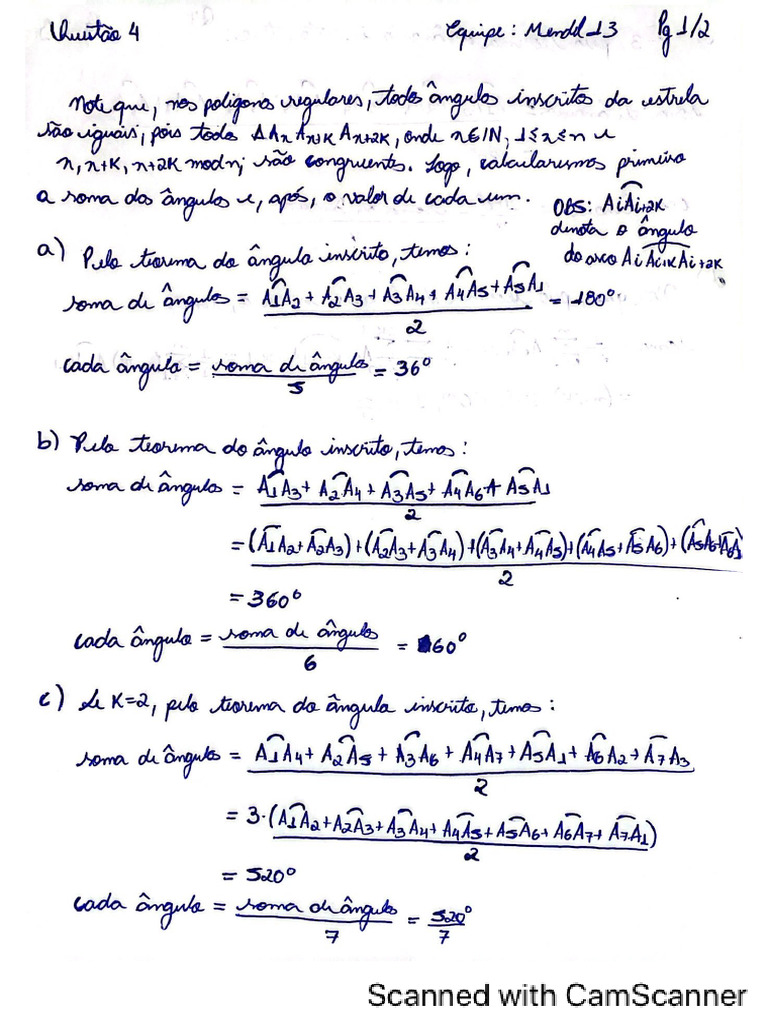 Questão 4 Equipe: Mendd_13 Pg 1/2
Note que, nos polígonos regulares, todos ângulos inscritos da estrela
são iguais, pois todos ΔAₓ Aₓ₊ₖ Aₓ₊₂ₖ, onde x∈ℕ, 1≤x≤n e
x, x+k, x+2k mod n, são congruentes. Logo, calcularemos primeiro
a soma dos ângulos e, após, o valor de cada um.
OBS: AiAi+2K
denota o ângulo
do arco AiAi+KAi+2K
a) Pelo teorema do ângulo inscrito, temos:
soma de ângulos = (A1A2 + A2A3 + A3A4 + A4A5 + A5A1)/2 = 180°
cada ângulo = soma de ângulos/5 = 36°
b) Pelo teorema do ângulo inscrito, temos:
soma de ângulos = (A1A3 + A2A4 + A3A5 + A4A6 + A5A1)/2
= (A1A2+A2A3)+(A2A3+A3A4)+(A3A4+A4A5)+(A4A5+A5A6)+(A5A6+A6A1)/2
= 360°
cada ângulo = soma de ângulos/6 = 60°
c) Se K=2, pelo teorema do ângulo inscrito, temos:
soma de ângulos = (A1A4 + A2A5 + A3A6 + A4A7 + A5A1 + A6A2 + A7A3)/2
= 3·(A1A2+A2A3+A3A4+A4A5+A5A6+A6A7+A7A1)/2
= 520°
cada ângulo = soma de ângulos/7 = 520°/7
Scanned with CamScanner